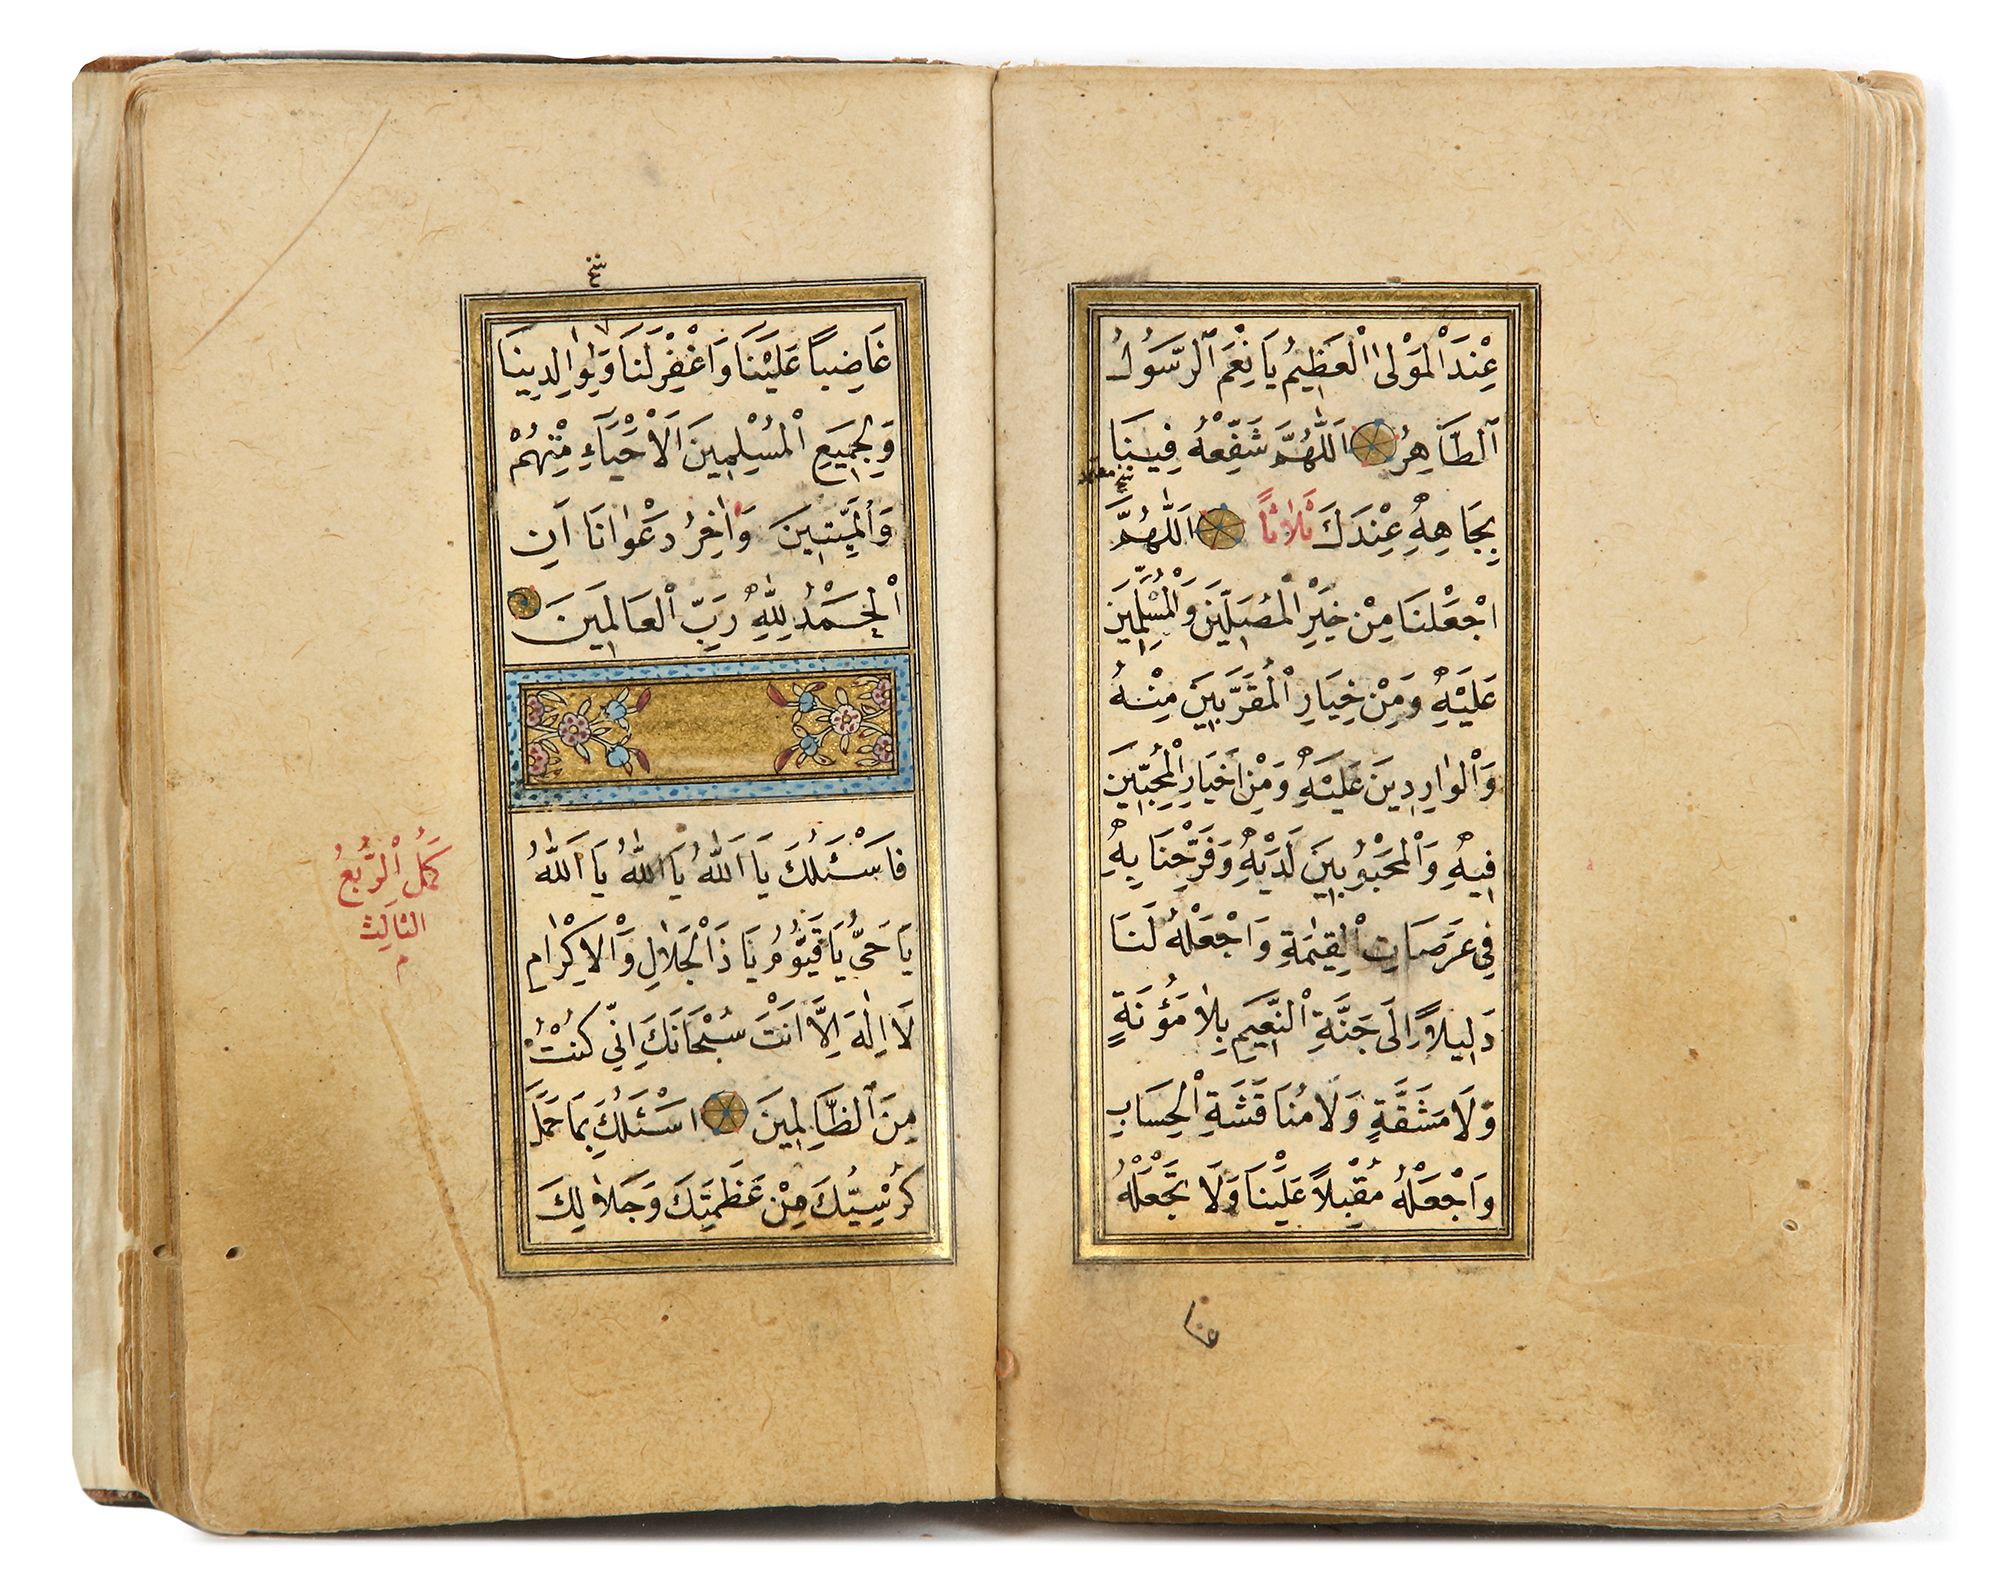 عِنْدَ الْمَوْلَى الْعَظِيمِ يَا نِعْمَ الرَّسُولُ
الطَّاهِرُ اَللّٰهُمَّ شَفِّعْهُ فِينَا
بِجَاهِهِ عِنْدَكَ ثَلَاثًا اَللّٰهُمَّ
اجْعَلْنَا مِنْ خَيْرِ الْمُصَلِّينَ وَالْمُسَلِّمِينَ
عَلَيْهِ وَمِنْ خِيَارِ الْمُقَرَّبِينَ مِنْهُ
وَالْوَارِدِينَ عَلَيْهِ وَمِنْ اَخْيَارِ الْمُحِبِّينَ
فِيهِ وَالْمَحْبُوبِينَ لَدَيْهِ وَفَرِّحْنَا بِهِ
فِي عَرَصَاتِ الْقِيٰمَةِ وَاجْعَلْهُ لَنَا
دَلِيلًا اِلَى جَنَّةِ النَّعِيمِ بِلَا مَؤُنَةٍ
وَلَا مَشَقَّةٍ وَلَا مُنَاقَشَةِ الْحِسَابِ
وَاجْعَلْهُ مُقْبِلًا عَلَيْنَا وَلَا تَجْعَلْهُ
غَاضِبًا عَلَيْنَا وَاغْفِرْ لَنَا وَلِوَالِدِينَا
وَلِجَمِيعِ الْمُسْلِمِينَ اَلْاَحْيَاءِ مِنْهُمْ
وَالْمَيِّتِينَ وَاٰخِرُ دَعْوٰانَا اَنِ
الْحَمْدُ لِلّٰهِ رَبِّ الْعَالَمِينَ
فَاَسْئَلُكَ يَا اَللّٰهُ يَا اَللّٰهُ يَا اَللّٰهُ
يَا حَيُّ يَا قَيُّومُ يَا ذَا الْجَلَالِ وَالْاِكْرَامِ
لَا اِلٰهَ اِلَّا اَنْتَ سُبْحَانَكَ اِنِّي كُنْتُ
مِنَ الظَّالِمِينَ اَسْئَلُكَ بِمَا حَمَلَ
كُرْسِيُّكَ مِنْ عَظَمَتِكَ وَجَلَالِكَ
كَمُلَ الرُّبُعُ
الثَّالِث
م